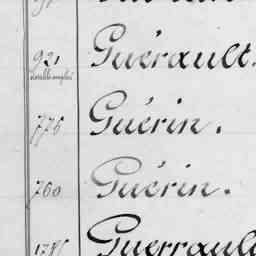 921 Guérault.
775 Guérin.
760 Guérin.
Guerrault